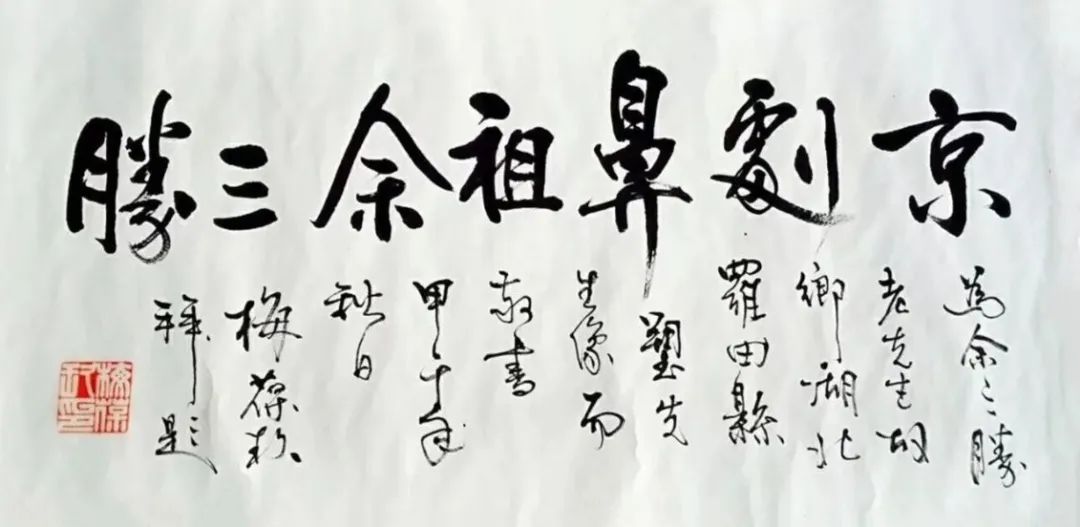 京劇鼻祖余三勝
為余三勝
老先生故
鄉湖北
羅田縣
塑先
生像而
敬書
甲午年
秋日
梅葆玖
拜題